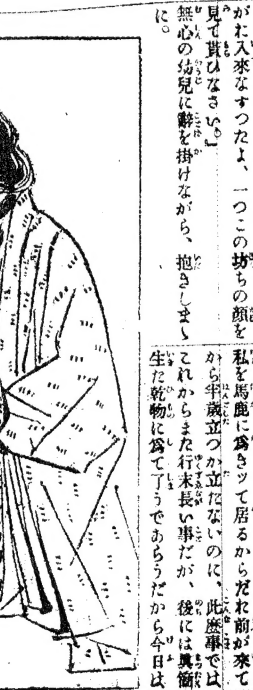 がた入來なすつたよ、一つこの坊ちの顏を
見て貰ひなさい。』
無心の幼兒に辭を掛けながら、抱きしまゝ
に。
私を馬鹿に爲きッて居るからだれ前が來て
から半歲立つか立たないのに、此麽事では
これからまた行末長い事だが、後には眞箇
生た乾物に爲て了うであらうだから今日は